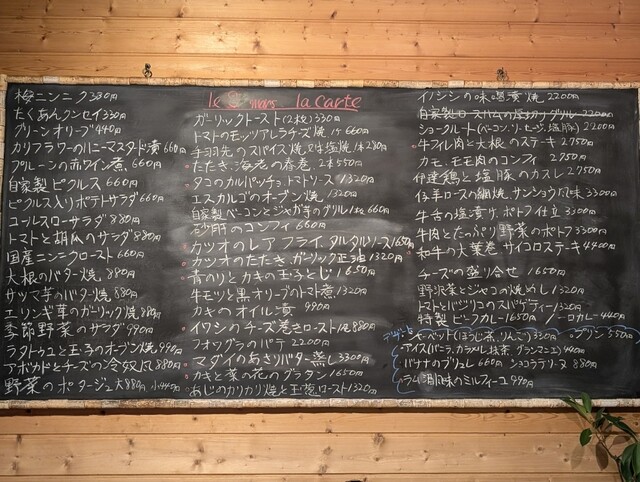 梅ニンニク330円
たくあんクンセイ330円
グリーンオリーブ440円
カリフラワーのハニーマスタード漬660円
プルーンの赤ワイン煮 660円
自家製ピクルス 660円
ピクルス入りポテトサラダ660円
コールスローサラダ 880円
トマトと胡瓜のサラダ880円
国産ニンニクロースト 660円
大根のバター焼。880円
サツマ芋のバター焼 880円
エリンギ茸のガーリック焼880円
季節野菜のサラダ 990円
ラタトゥユと玉子のオーブン焼 990円
アボカドとチーズの冷奴風 880円
野菜のポタージュ大880円 小440円
le mars la carte
ガーリックトースト(2枚)330円
トマトのモッツアレラチーズ焼 1ケ660円
手羽先のスパイス焼 1本280円
たたき海老の春巻 2本550円
タコのカルパッチョ トマトソース 1320円
エスカルゴのオーブン焼 1320円
自家製ベーコンとジャガ芋のグリル 660円
砂肝のコンフィ 660円
カツオのレアフライ タルタルソース1650円
カツオのたたき ガーリック正油 1320円
青のりとカキの玉子とじ 1650円
牛モツと黒オリーブのトマト煮 1320円
カキのオイル漬 990円
イワシのチーズ巻きロースト風880円
フォアグラのパテ 2200円
マダイのあさりバター蒸し3300円
カキと菜の花のグラタン 1650円
あじのカリカリ焼と玉葱ロースト1320円
イノシシの味噌漬焼 2200円
自家製ロースハムの グリル 2200円
シュークルート(ベーコン、ソーセージ、塩豚) 2200円
牛フィレ肉と大根のステキ 2750円
カモ、モモ肉のコンフィ 2750円
伊達鶏と塩豚のカスレ 2750円
仔羊ロースの網焼、サンショウ風味 3300円
牛舌の塩漬け、ポトフ仕立 3300円
牛肉とたっぷり野菜のポトフ3300円
和牛の大葉巻 サイコロステーキ4400円
チーズの盛り合せ 1650円
野沢菜とジャコの焼めし 1320円
トマトとバジリコのスパゲティー1320円
特製ビーフカレー1650円 ハーフカレー440円
デザート シャーベット(ほうじ茶、りんご)330円 プリン550円
アイス(バニラ、カラメル、抹茶、グランマニエ)440円
バナナのブリュレ 660円 ショコラテリーヌ 880円
ラム酒風味のミルフィーユ 990円